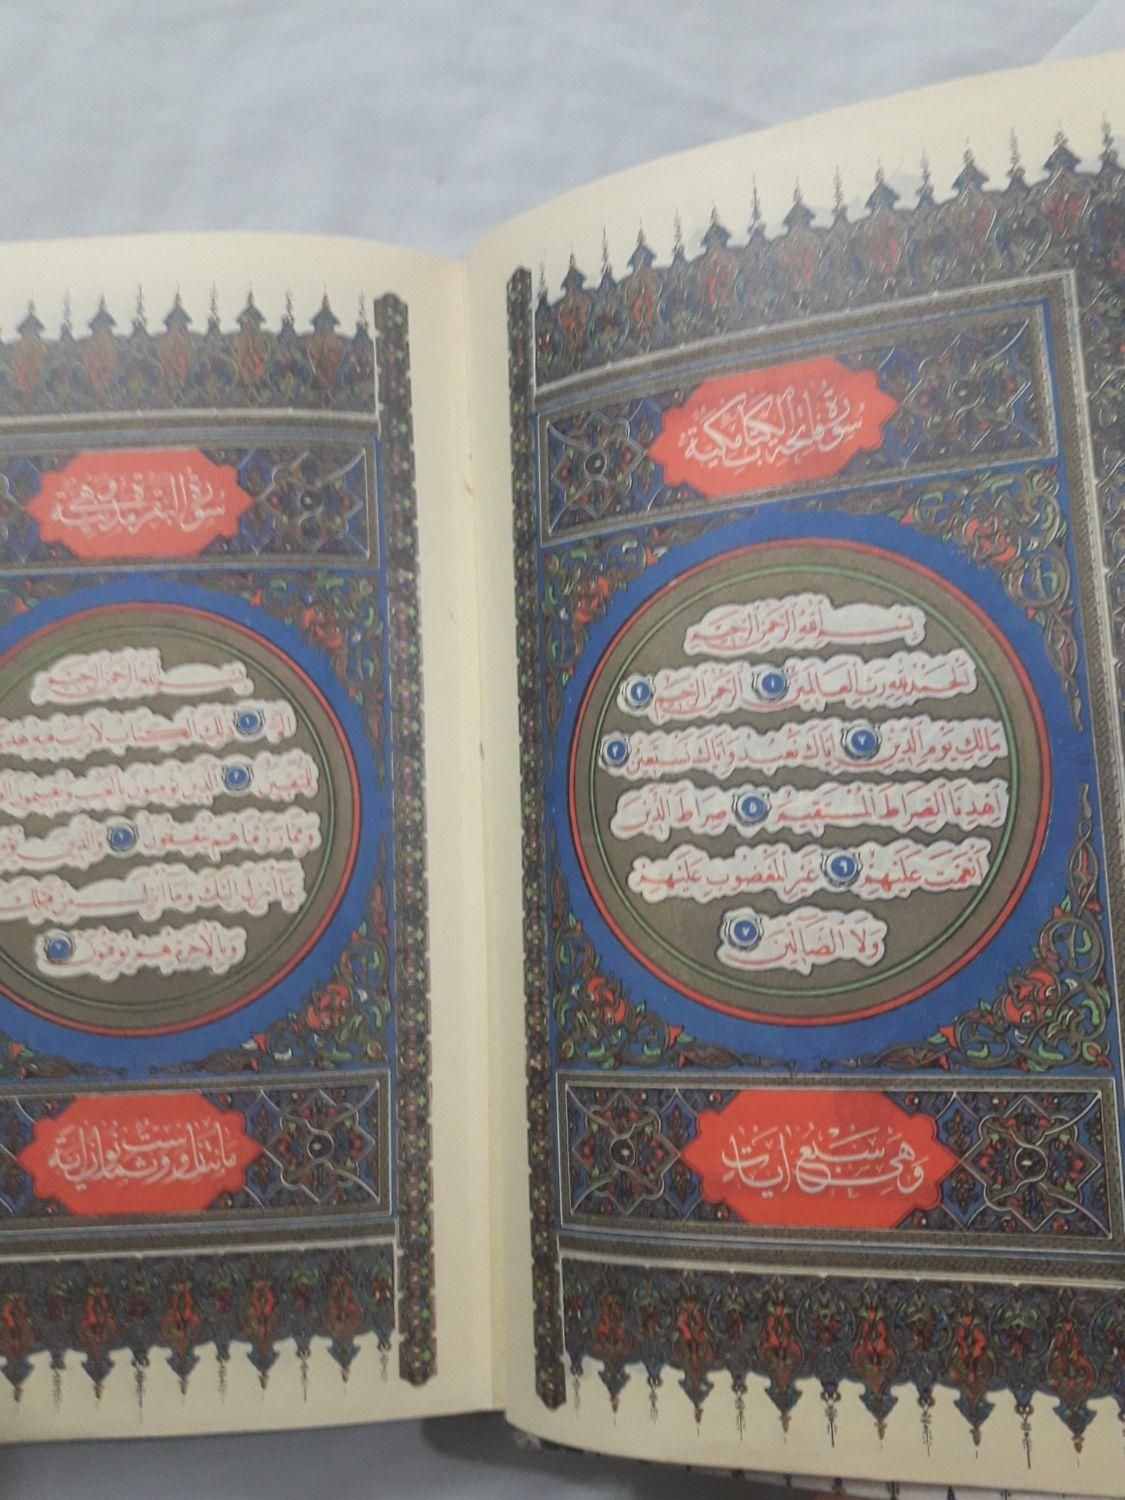 سورة فاتحة الكتاب مكية
بسم الله الرحمن الرحيم
الحمد لله رب العالمين ١ الرحمن الرحيم ٢
مالك يوم الدين ٣ إياك نعبد وإياك نستعين ٤
اهدنا الصراط المستقيم ٥ صراط الذين
أنعمت عليهم ٦ غير المغضوب عليهم
ولا الضالين ٧
وهي سبع آيات
سورة البقرة وهي مدنية
بسم الله الرحمن الرحيم
الم ١ ذلك الكتاب لا ريب فيه هدى
للمتقين ٢ الذين يؤمنون بالغيب ويقيمون
ومما رزقناهم ينفقون ٣ والذين يؤمنون
بما أنزل إليك وما أنزل من قبلك
وبالآخرة هم يوقنون ٤
مائتان وست وثمانون آية